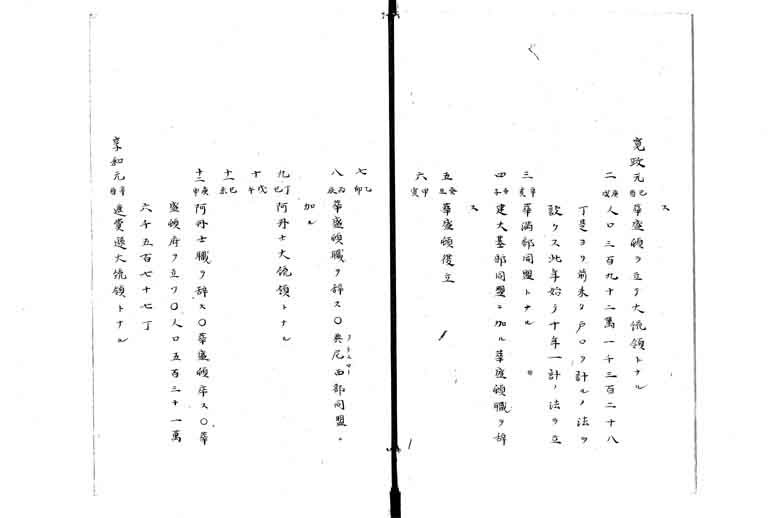 ス
寛政元己酉華盛頓ヲ立テ大統領トナル
二庚戌人口三百九十二萬一千三百二十八
丁是ヨリ前未タ戸口ヲ計ルノ法ヲ
設ケス此年始テ十年一計ノ法ヲ立
三辛亥華満部同盟トナル
四壬子建大基部同盟ニ加ル華盛頓職ヲ辞
ス
五癸丑華盛頓復立
六甲寅
七乙卯
八丙辰華盛頓職ヲ辞ス〇典尼西部同盟ニ
加ル
九丁巳阿丹士大統領トナル
十戊午
十一己未
十二庚申阿丹士職ヲ辞ス〇華盛頓卒ス〇華
盛頓府ヲ立ツ〇人口五百三十一萬
六千五百七十七丁
享和元辛酉遮費遜大統領トナル